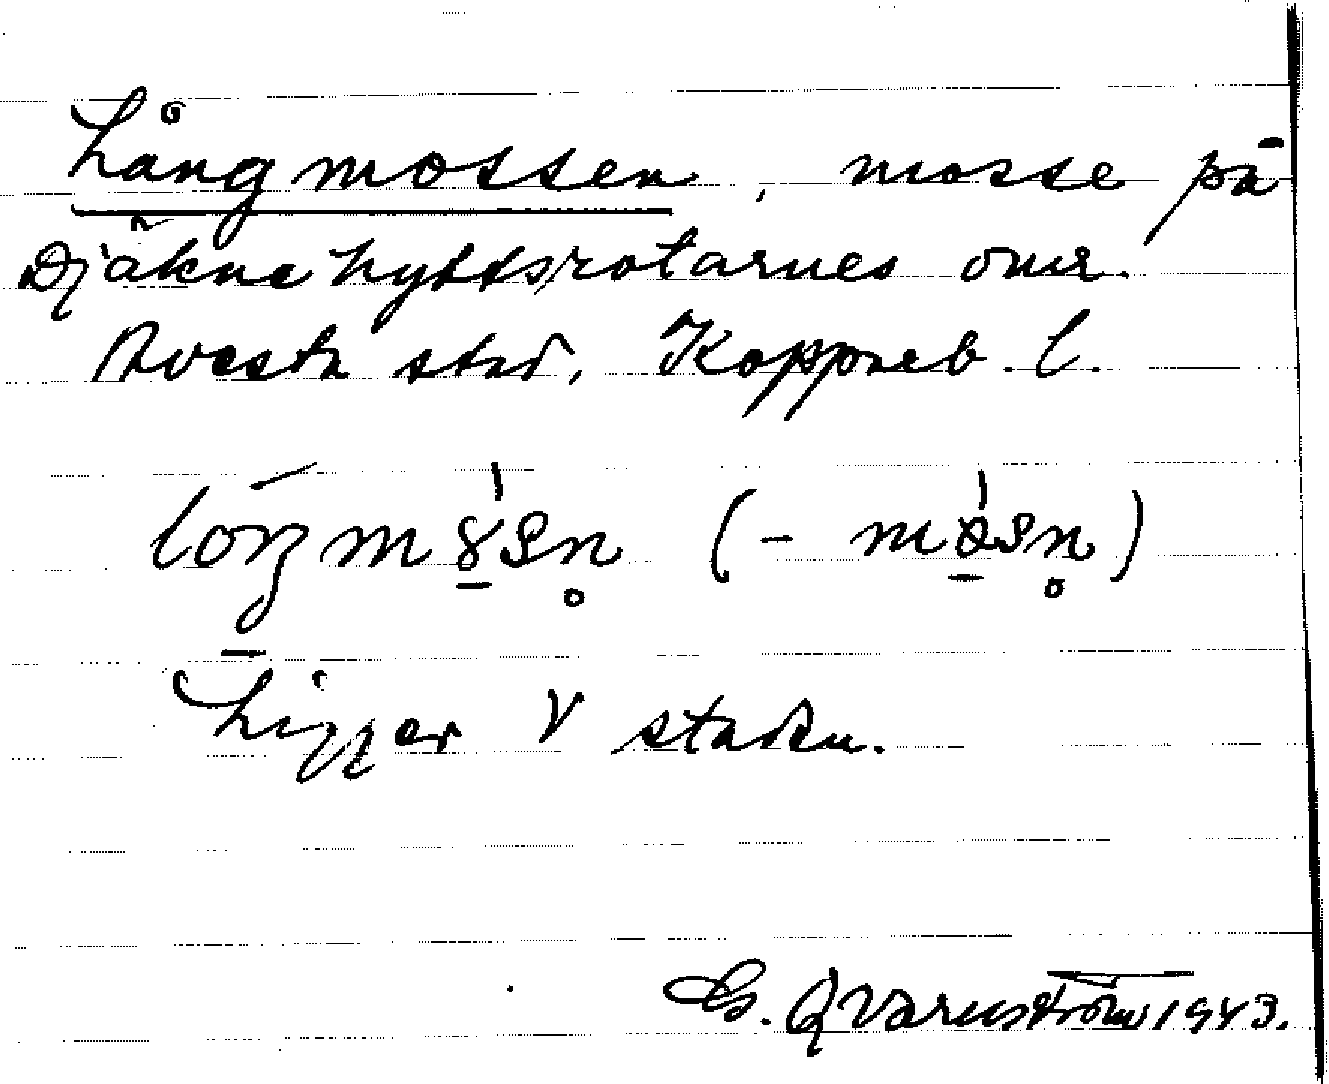 Långmossen, mosse på
Djäknehyttsrotarnes omr.
Avesta stad, Kopparb. l.
(-
Ligger V staden.
G. Qvarnström 1943.